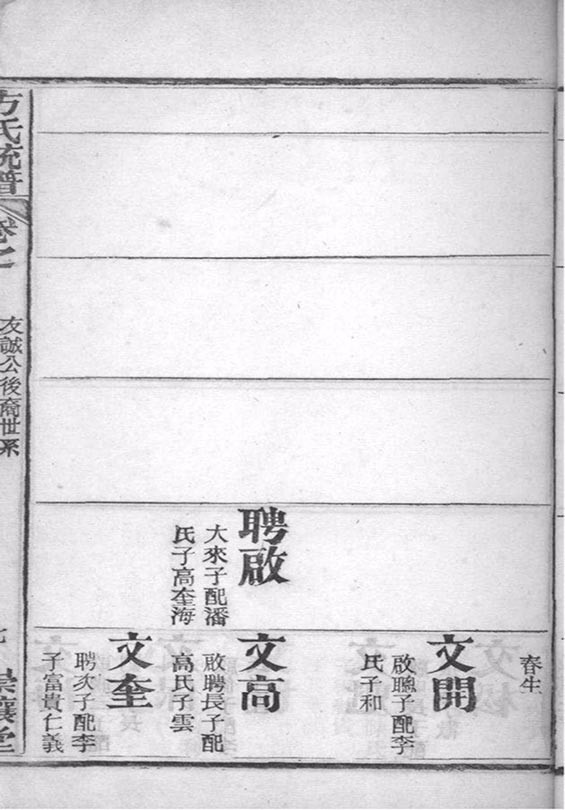 聘啟
大來子配潘
氏子高奎海
春生
文開
啟聰子配李
氏子和
文高
啟聘長子配
高氏子雲
文奎
聘次子配李
子富貴仁義
方氏統譜
卷之
友誠公後裔世系